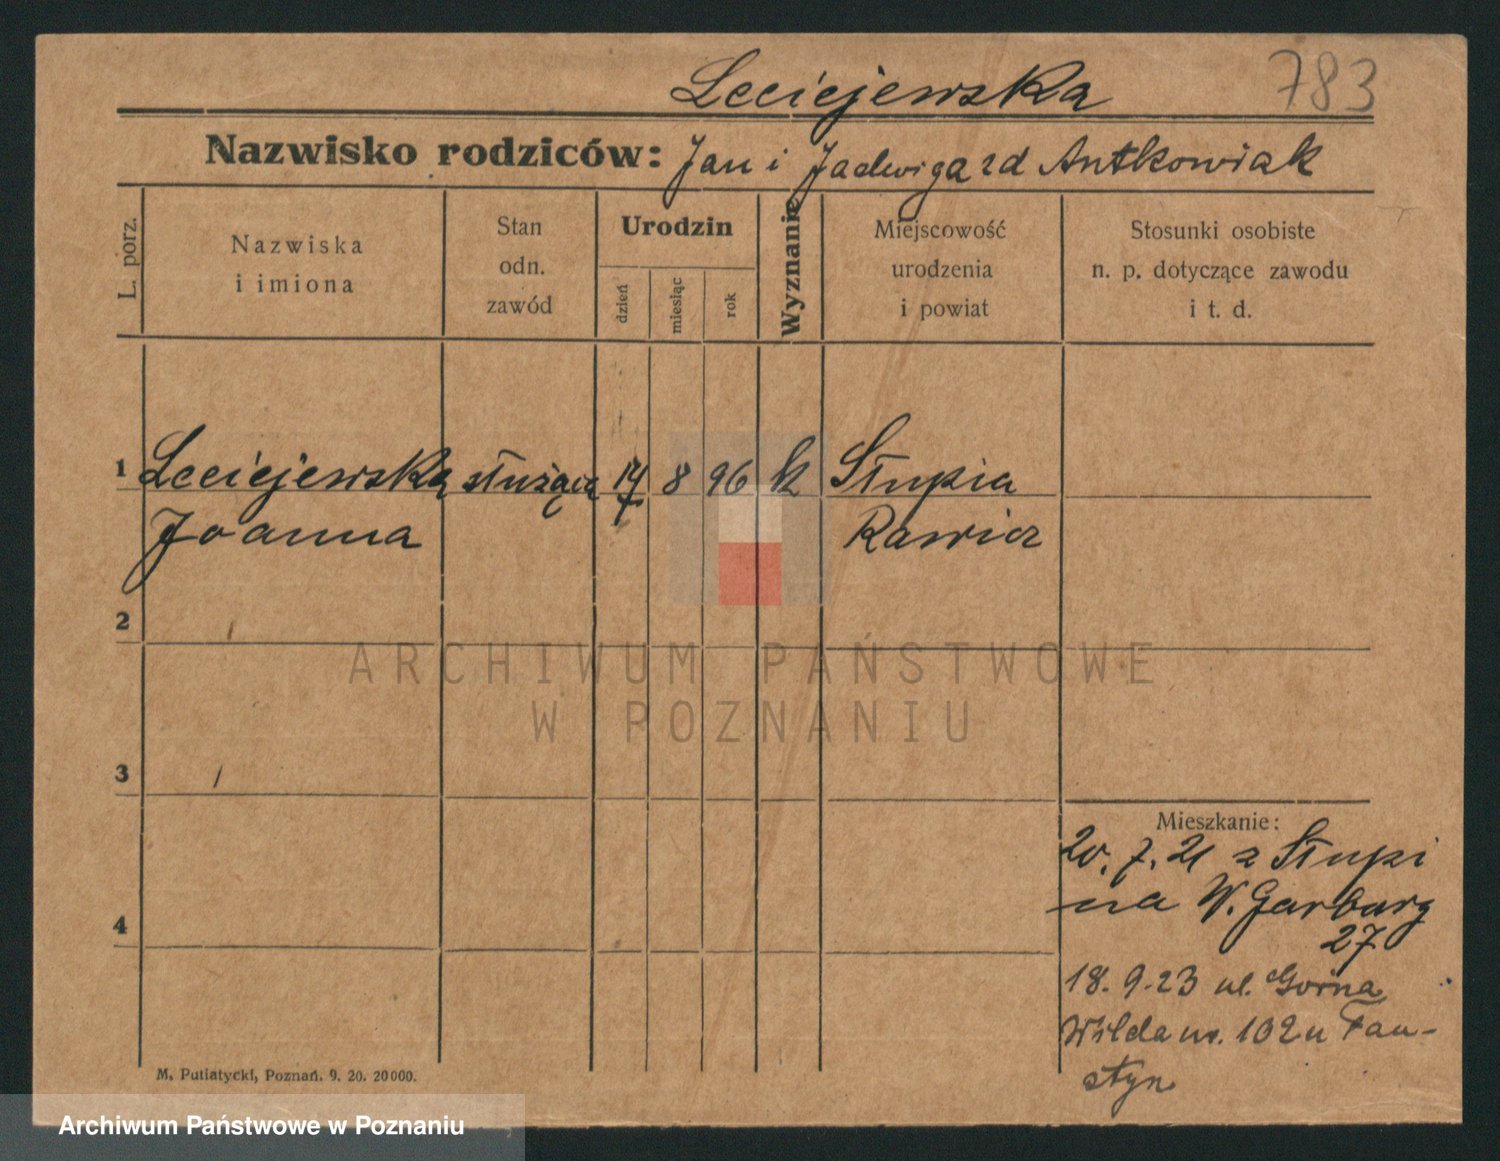 Leciejewska 783
Nazwisko rodziców: Jan i Jadwiga zd Antkowiak
L. porz.
Nazwiska
i imiona
Stan
odn.
zawód
Urodzin
dzień
miesiąc
rok
Wyznanie
Miejscowość
urodzenia
i powiat
Stosunki osobiste
n. p. dotyczące zawodu
i t. d.
1 Leciejewska służąca 8 96 k Słupia
Joanna Rawicz
2
ARCHIWUM PAŃSTWOWE
W POZNANIU
3
Mieszkanie:
20. 7. 21 z Słupi
na W. Garbary
27
4
18. 9. 23 ul. Górna
Wilda nr. 102 u Fau-
styn
M. Putiatycki, Poznań. 9. 20. 20000.
Archiwum Państwowe w Poznaniu